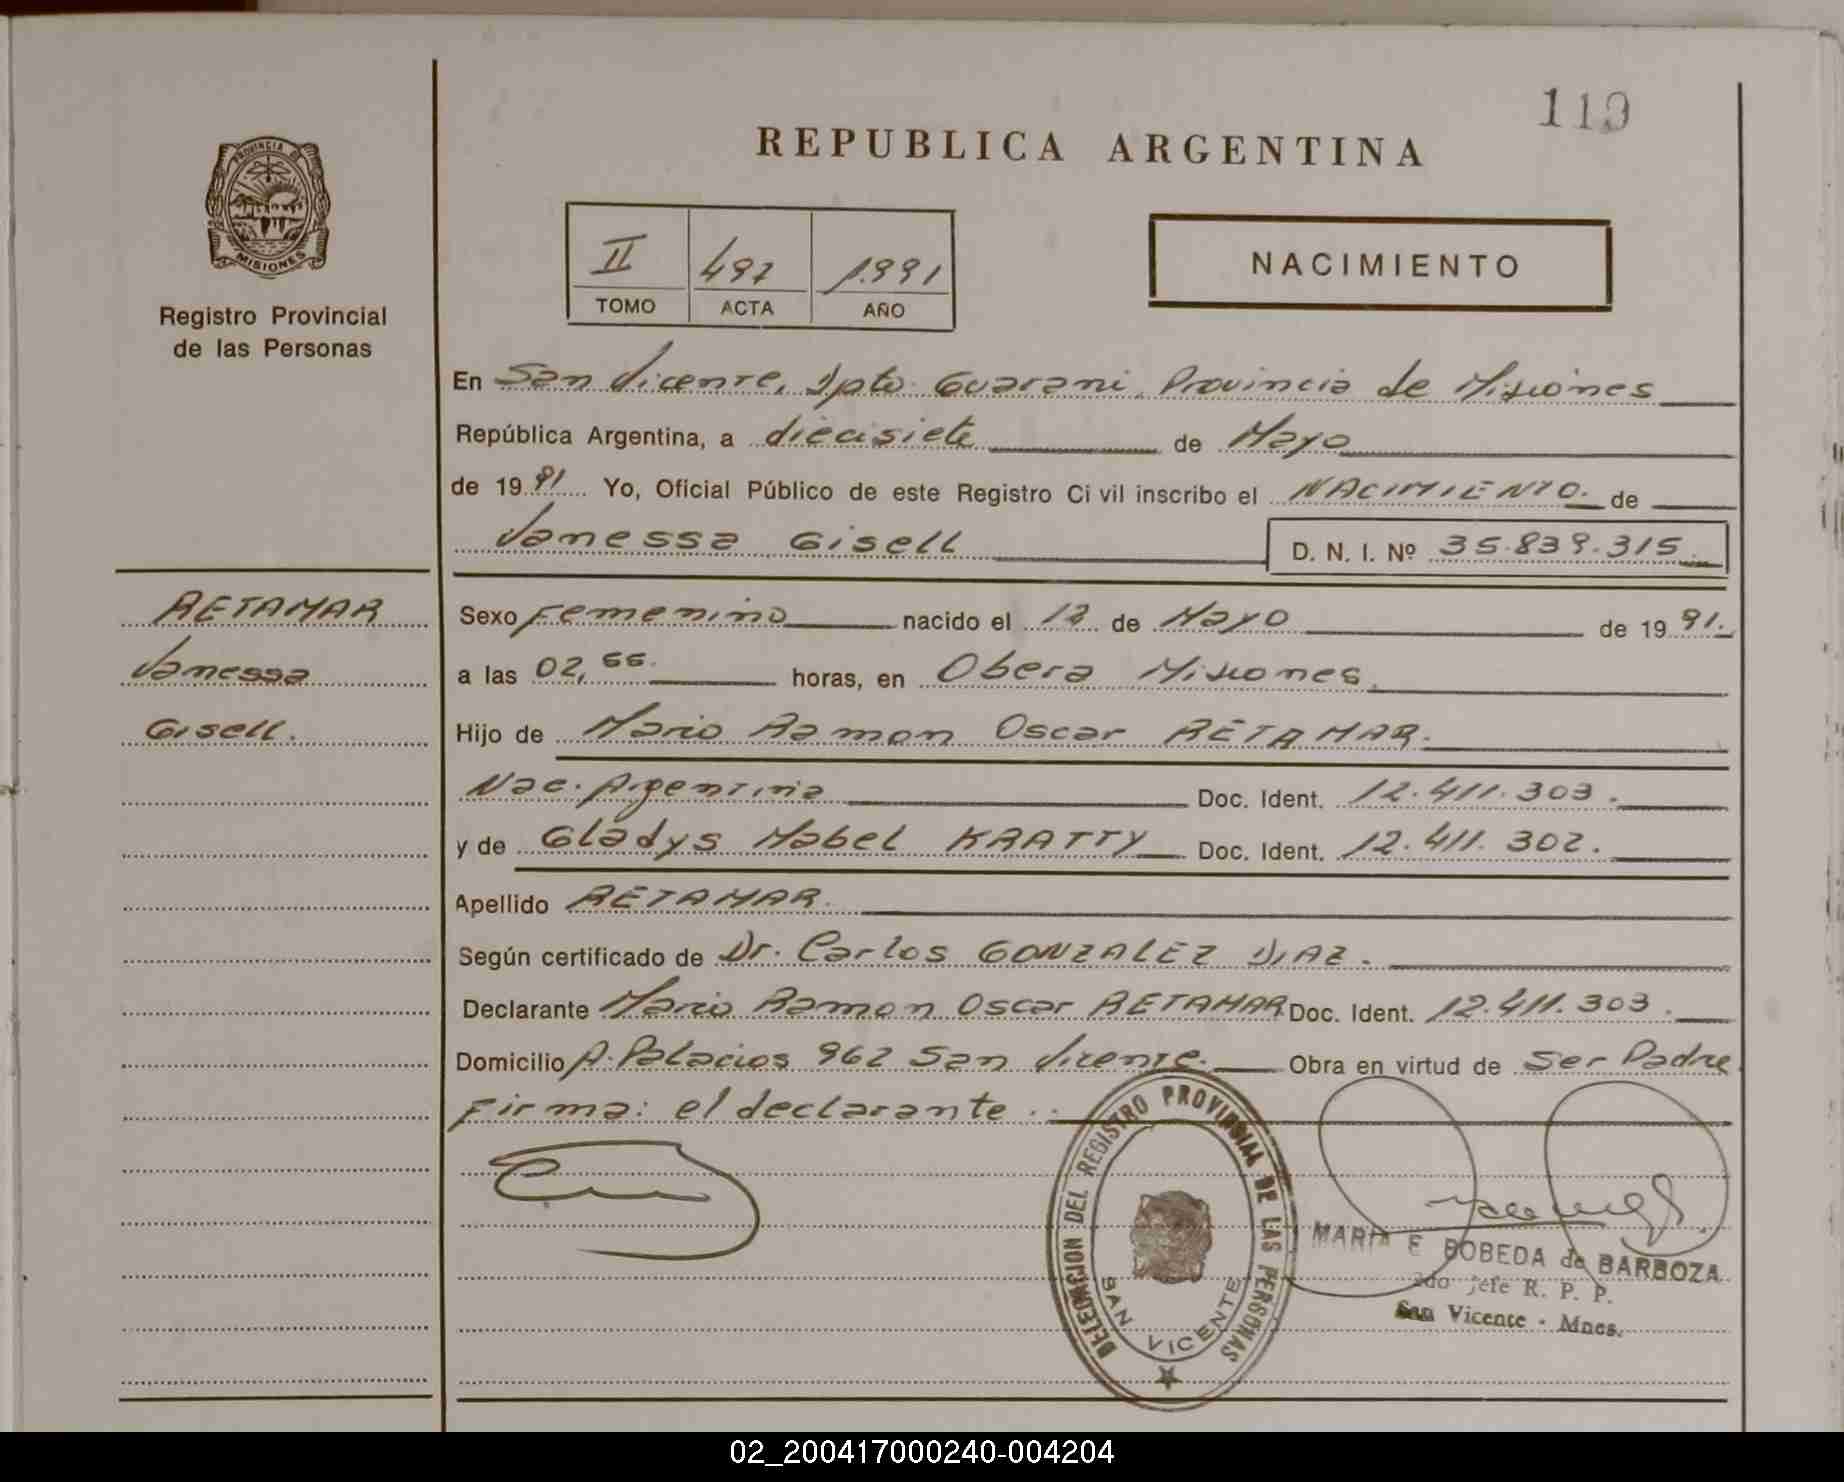 119
REPUBLICA ARGENTINA
PROVINCIA DE
MISIONES
Registro Provincial
de las Personas
II 497 1.991
TOMO ACTA AÑO
NACIMIENTO
En San Vicente, Dpto. Guarani, Provincia de Misiones
República Argentina, a diecisiete de Mayo
de 19 91 Yo, Oficial Público de este Registro Civil inscribo el NACIMIENTO. de
Vanessa Gisell D. N. I. Nº 35.839.315
RETAMAR
Vanessa
Gisell.
Sexo Femenino nacido el de Mayo de 19 91.
a las horas, en Obera Misiones.
Hijo de Mario Ramon Oscar RETAMAR.
Nac. Argentina Doc. Ident. 12.411.303.
y de Gladys Mabel KRATTY Doc. Ident. 12.411.302.
Apellido RETAMAR.
Según certificado de Dr. Carlos GONZALEZ DIAZ.
Declarante Mario Ramon Oscar RETAMAR Doc. Ident. 12.411.303.
Domicilio A. Palacios 962 San Vicente. Obra en virtud de Ser Padre
Firma: el declarante..
DELEGACION DEL REGISTRO PROVINCIAL DE LAS PERSONAS
SAN VICENTE
MARIA E BOBEDA de BARBOZA
2do jefe R. P. P.
San Vicente - Mnes.
02_200417000240-004204